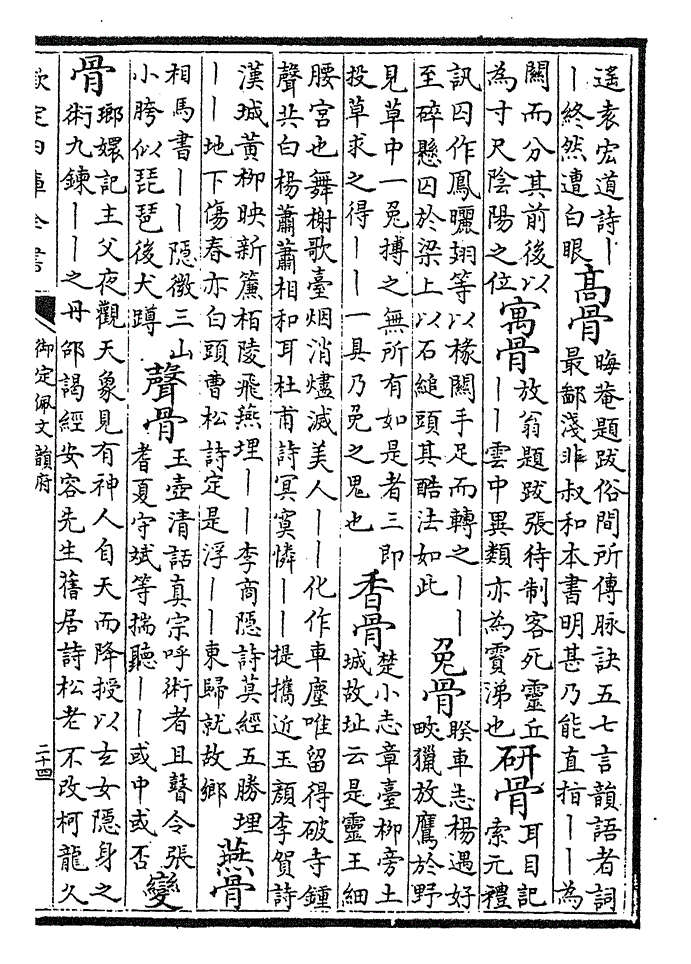 遙袁宏道詩丨
丨終然遭白眼
高骨
晦菴題跋俗間所傳脉訣五七言韻語者詞
最鄙淺非叔和本書明甚乃能直指丨丨為
關而分其前後以
為寸尺陰陽之位
寓骨
放翁題跋張待制客死靈丘
丨丨雲中異類亦為霣涕也
研骨
耳目記
索元禮
訊囚作鳳曬翅等以椽關手足而轉之丨丨
至碎懸囚於梁上以石縋頭其酷法如此
兔骨
暌車志楊遇好
畋獵放鷹於野
見草中一兔搏之無所有如是者三即
投草求之得丨丨一具乃兔之鬼也
香骨
楚小志章臺柳旁土
城故址云是靈王細
腰宮也舞榭歌臺烟消燼滅美人丨丨化作車塵唯留得破寺鍾
聲共白楊蕭蕭相和耳杜甫詩冥寞憐丨丨提攜近玉顏李賀詩
漢城黃柳映新簾栢陵飛燕埋丨丨李商隱詩莫經五勝埋
丨丨地下傷春亦白頭曹松詩定是浮丨丨東歸就故鄉
燕骨
相馬書丨丨隱微三山
小胯似琵琶後犬蹲
聲骨
玉壺清話真宗呼術者且瞽令張
耆夏守斌等揣聽丨丨或中或否
變
骨
瑯嬛記主父夜觀天象見有神人自天而降授以玄女隱身之
術九鍊丨丨之丹邵謁經安容先生舊居詩松老不改柯龍久
欽定四庫全書
御定佩文韻府
二十四